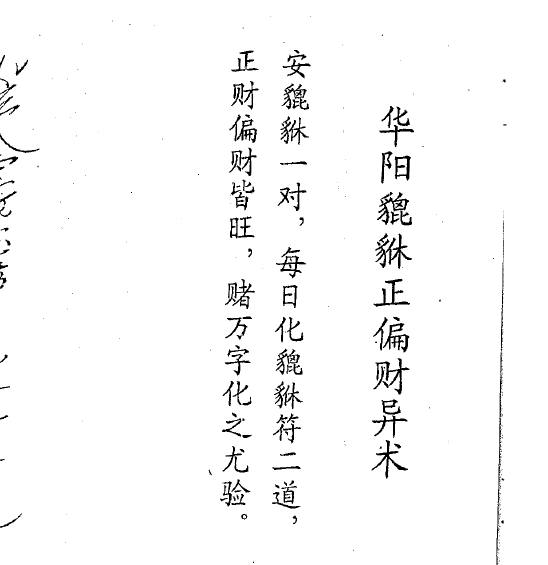 华阳貔貅正偏财异术
安貔貅一对，每日化貔貅符二道，
正财偏财皆旺，赌万字化之尤验。